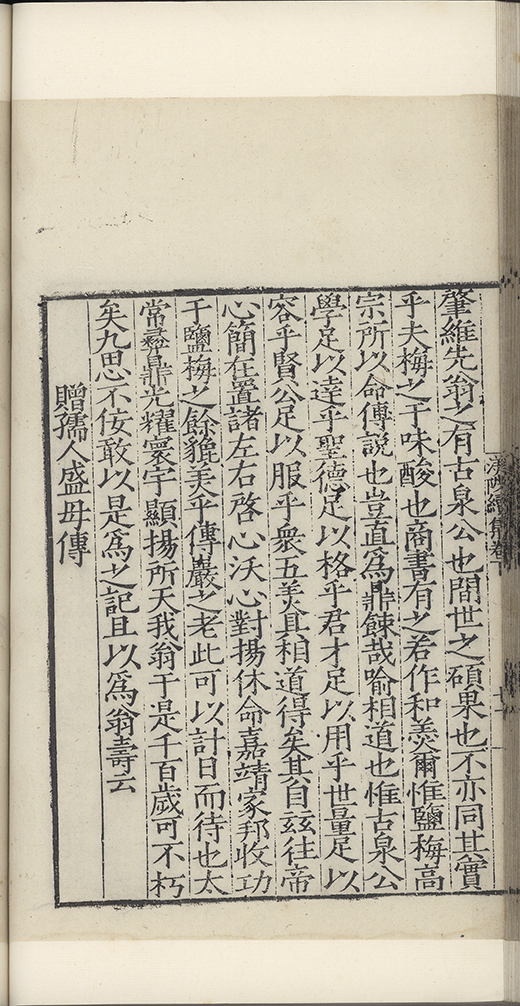 肇維先翁之有古泉公也間世之碩果也不亦同其實
乎夫梅之于味酸也商書有之若作和羹爾惟鹽梅高
宗所以命傅說也豈直為鼎餗哉喻相道也惟古泉公
學足以達乎聖德足以格乎君才足以用乎世量足以
容乎賢公足以服乎衆五美具相道得矣其自玆往帝
心簡在置諸左右啓心沃心對揚休命嘉靖家邦收功
于鹽梅之餘貌美乎傅巖之老此可以計日而待也太
常彛鼎光耀寰宇顯揚所天我翁于是千百歲可不朽
矣九思不侫敢以是爲之記且以爲翁壽云
贈孺人盛母傳
續集卷下